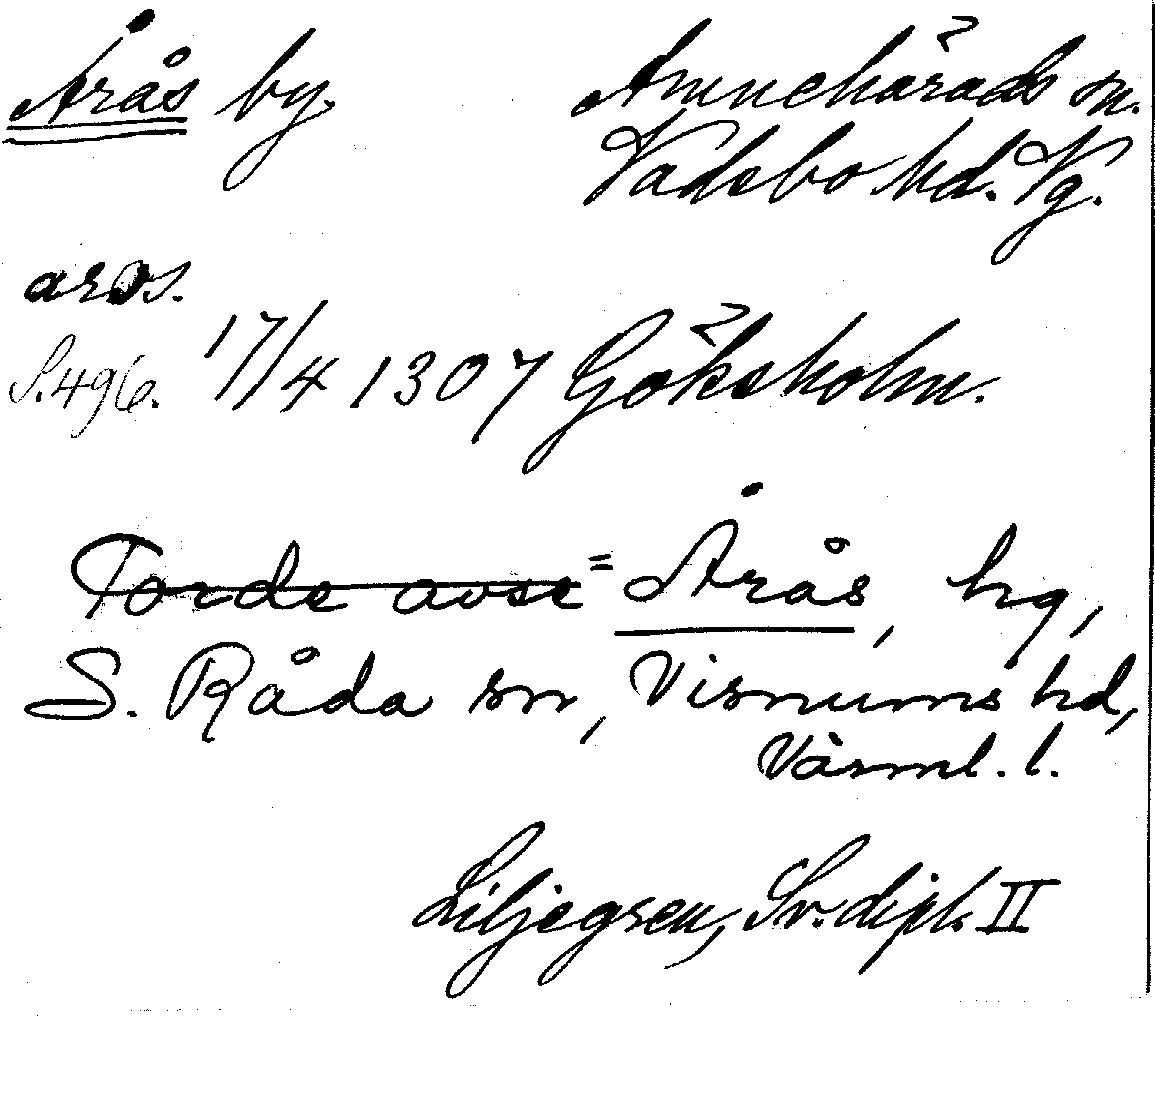 Årås by. Amnehärads sn.
Vadsbo hd. Vg.
aros.
S. 496. 17/4 1307 Göksholm.
Torde avse = Årås, hg,
S. Råda sn, Visnums hd,
Värml. l.
Liljegren, Sv. dipl. II